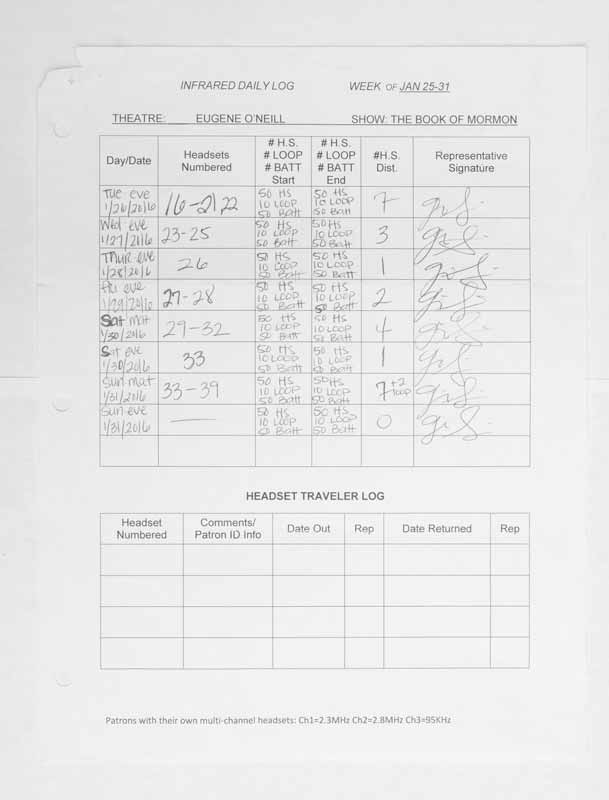 INFRARED DAILY LOG WEEK OF JAN 25-31
THEATRE: EUGENE O'NEILL SHOW: THE BOOK OF MORMON
Day/Date Headsets Numbered # H.S. # LOOP # BATT Start # H.S. # LOOP # BATT End #H.S. Dist. Representative Signature
Tue eve 1/26/2016 16-22 50 HS 10 LOOP 50 Batt 50 HS 10 LOOP 50 Batt 7
Wed eve 1/27/2016 23-25 50 HS 10 LOOP 50 Batt 50 HS 10 LOOP 50 Batt 3
Thur eve 1/28/2016 26 50 HS 10 LOOP 50 Batt 50 HS 10 LOOP 50 Batt 1
Fri eve 1/29/2016 27-28 50 HS 10 LOOP 50 Batt 50 HS 10 LOOP 50 Batt 2
Sat mat 1/30/2016 29-32 50 HS 10 LOOP 50 Batt 50 HS 10 LOOP 50 Batt 4
Sat eve 1/30/2016 33 50 HS 10 LOOP 50 Batt 50 HS 10 LOOP 50 Batt 1
Sun mat 1/31/2016 33-39 50 HS 10 LOOP 50 Batt 50 HS 10 LOOP 50 Batt 7 +2 loop
Sun eve 1/31/2016 — 50 HS 10 LOOP 50 Batt 50 HS 10 LOOP 50 Batt 0
HEADSET TRAVELER LOG
Headset Numbered Comments/ Patron ID Info Date Out Rep Date Returned Rep
Patrons with their own multi-channel headsets: Ch1=2.3MHz Ch2=2.8MHz Ch3=95KHz